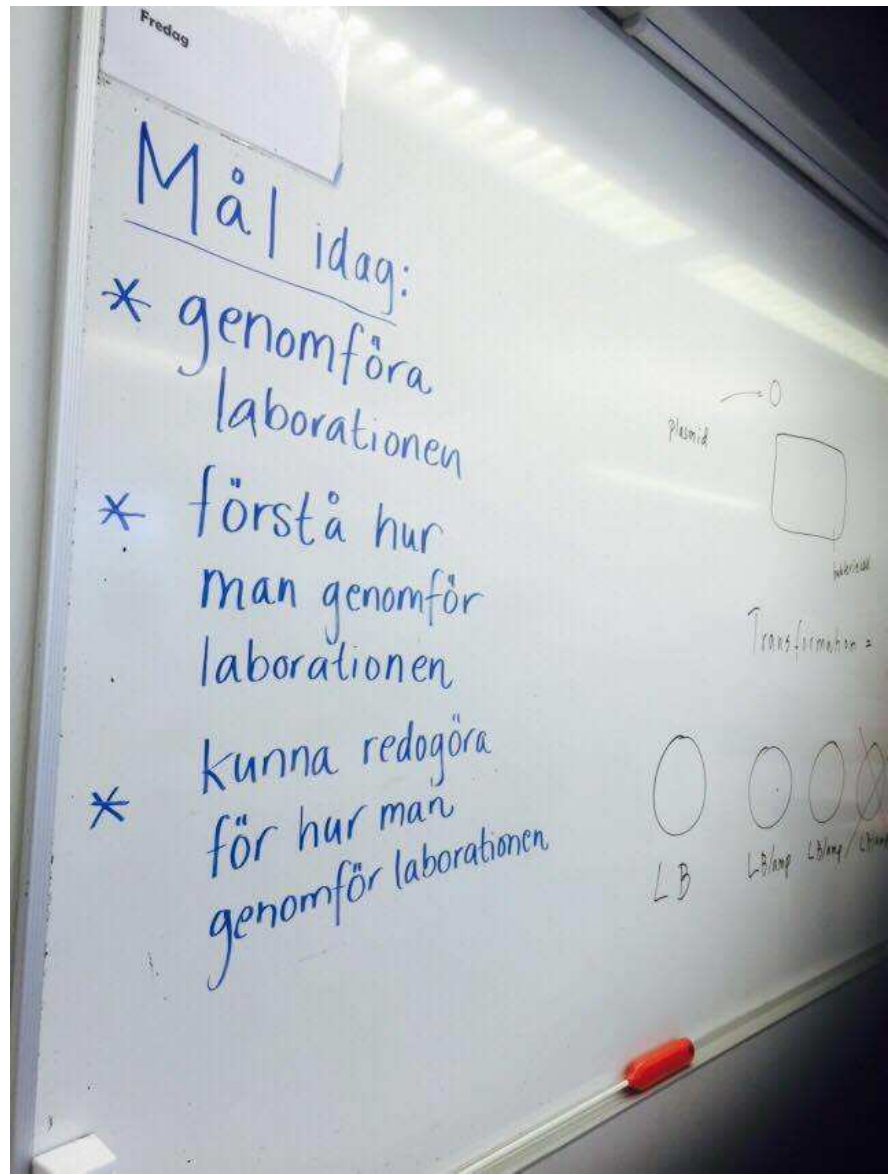 Fredag
Mål idag:
* genomföra
laborationen
* förstå hur
man genomför
laborationen
* kunna redogöra
för hur man
genomför laborationen
plasmid
Transformation =
LB
LB/amp
LB/amp